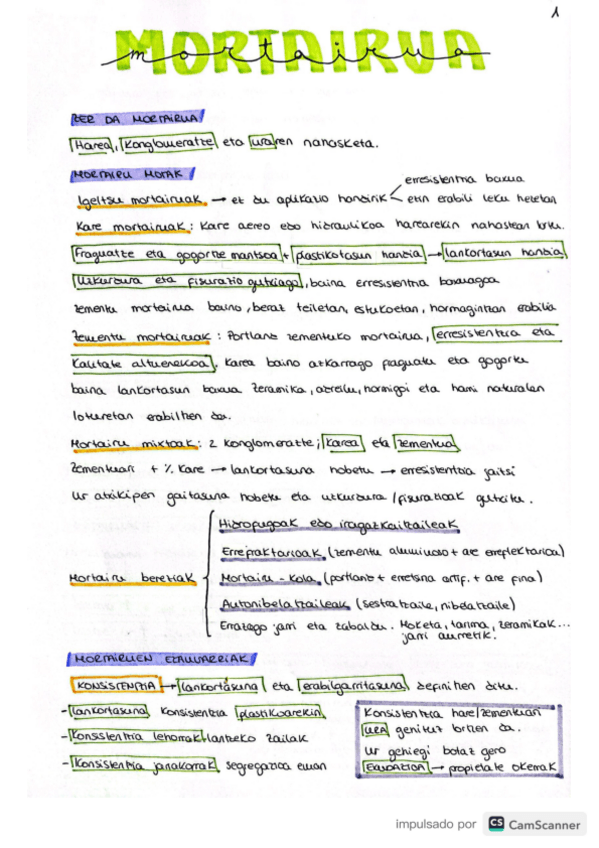 1
MORTAIRUA
mortairua
ZER DA MORTAIRUA
Harea, Konglomeratze eta uraren nahasketa.
MORTAIRU MOTAK
erresistentzia baxua
Igeltsu mortairuak → ez du aplikazio handirik
ezin erabili leku hezetan
Kare mortairuak: Kare aereo edo hidraulikoa harearekin nahastean lortu.
Fraguatze eta gogortze mantsoa + plastikotasun handia → lankortasun handia
Uzkurdura eta fisurazio gutxiago, baina erresistentzia baxuagoa
zementu mortairua baino, beraz teilatan, estukoetan, hormagintzan erabilia
Zementu mortairuak: Portland zementuko mortairua, erresistentzia eta
Kalitate altuenekoa. Karea baino azkarrago fraguatu eta gogortu
baina lankortasun baxua. Zeramika, adreilu, hormigoi eta harri naturalen
loturetan erabiltzen da.
Mortairu mixtoak: 2 konglomeratze; Karea eta zementua
Zementuari + % Kare → lankortasuna hobetu → erresistentzia jaitsi
Ur atxikipen gaitasuna hobetu eta uzkurdura/fisurazioak gutxitu.
Hidrofugoak edo iragazkaitzaileak
Errefraktarioak (zementu aluminoso + are errefraktarioa)
Mortairu bereziak
Mortairu-kola (portland + erretxina artif. + are fina)
Autonibelatzaileak (sestratzaile, nibelatzaile)
Errazago jarri eta zabaldu. Moketa, tarima, zeramikak...
jarri aurretik.
MORTAIRUEN EZAUGARRIAK
KONSISTENTZIA → lankortasuna eta erabilgarritasuna definitzen ditu.
- Lankortasuna konsistentzia plastikoarekin
- Konsistentzia lehorrak lantzeko zailak
- Konsistentzia jariakorrak segregazioa eman
Konsistentzia hare/zementuari
URA gehituz lortzen da.
Ur gehiegi botaz gero
EXUDAZIOA → propietate okerrak
impulsado por CS CamScanner